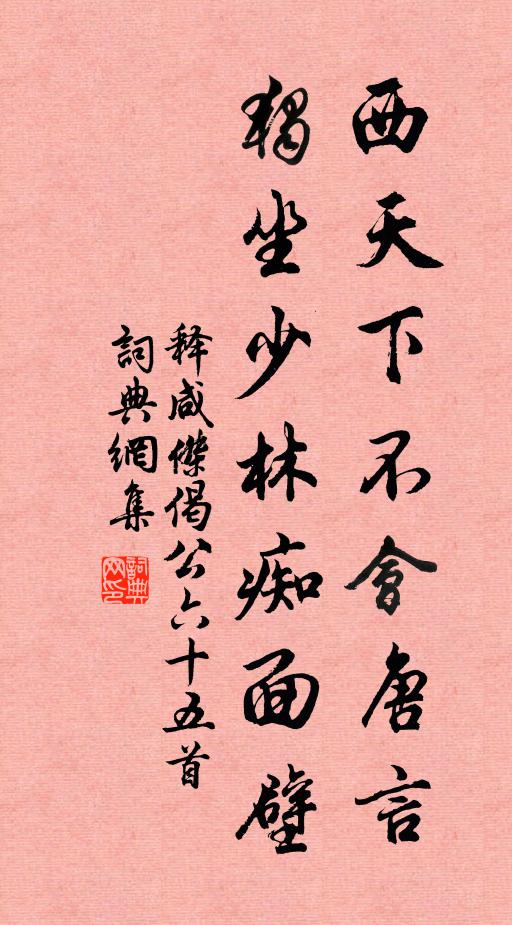 西天下不會唐言
獨坐少林痴面壁
释咸傑偈公六十五首
詞典網集
詞典網印